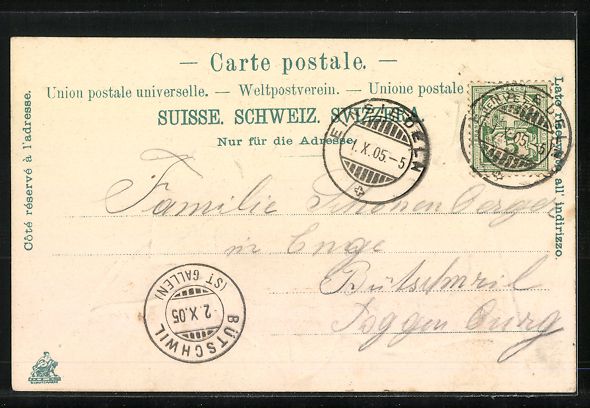 — Carte postale. —
Union postale universelle. — Weltpostverein. — Unione postale
SUISSE. SCHWEIZ. SVIZZERA.
Nur für die Adresse.
Côté réservé à l'adresse.
Lato riservato all' indirizzo.
EINSIEDELN
1.X.05.-5
EINSIEDELN
Familie Schönenberger
in Enge
Bütschwil
Toggenburg
BÜTSCHWIL
(ST. GALLEN)
2.X.05